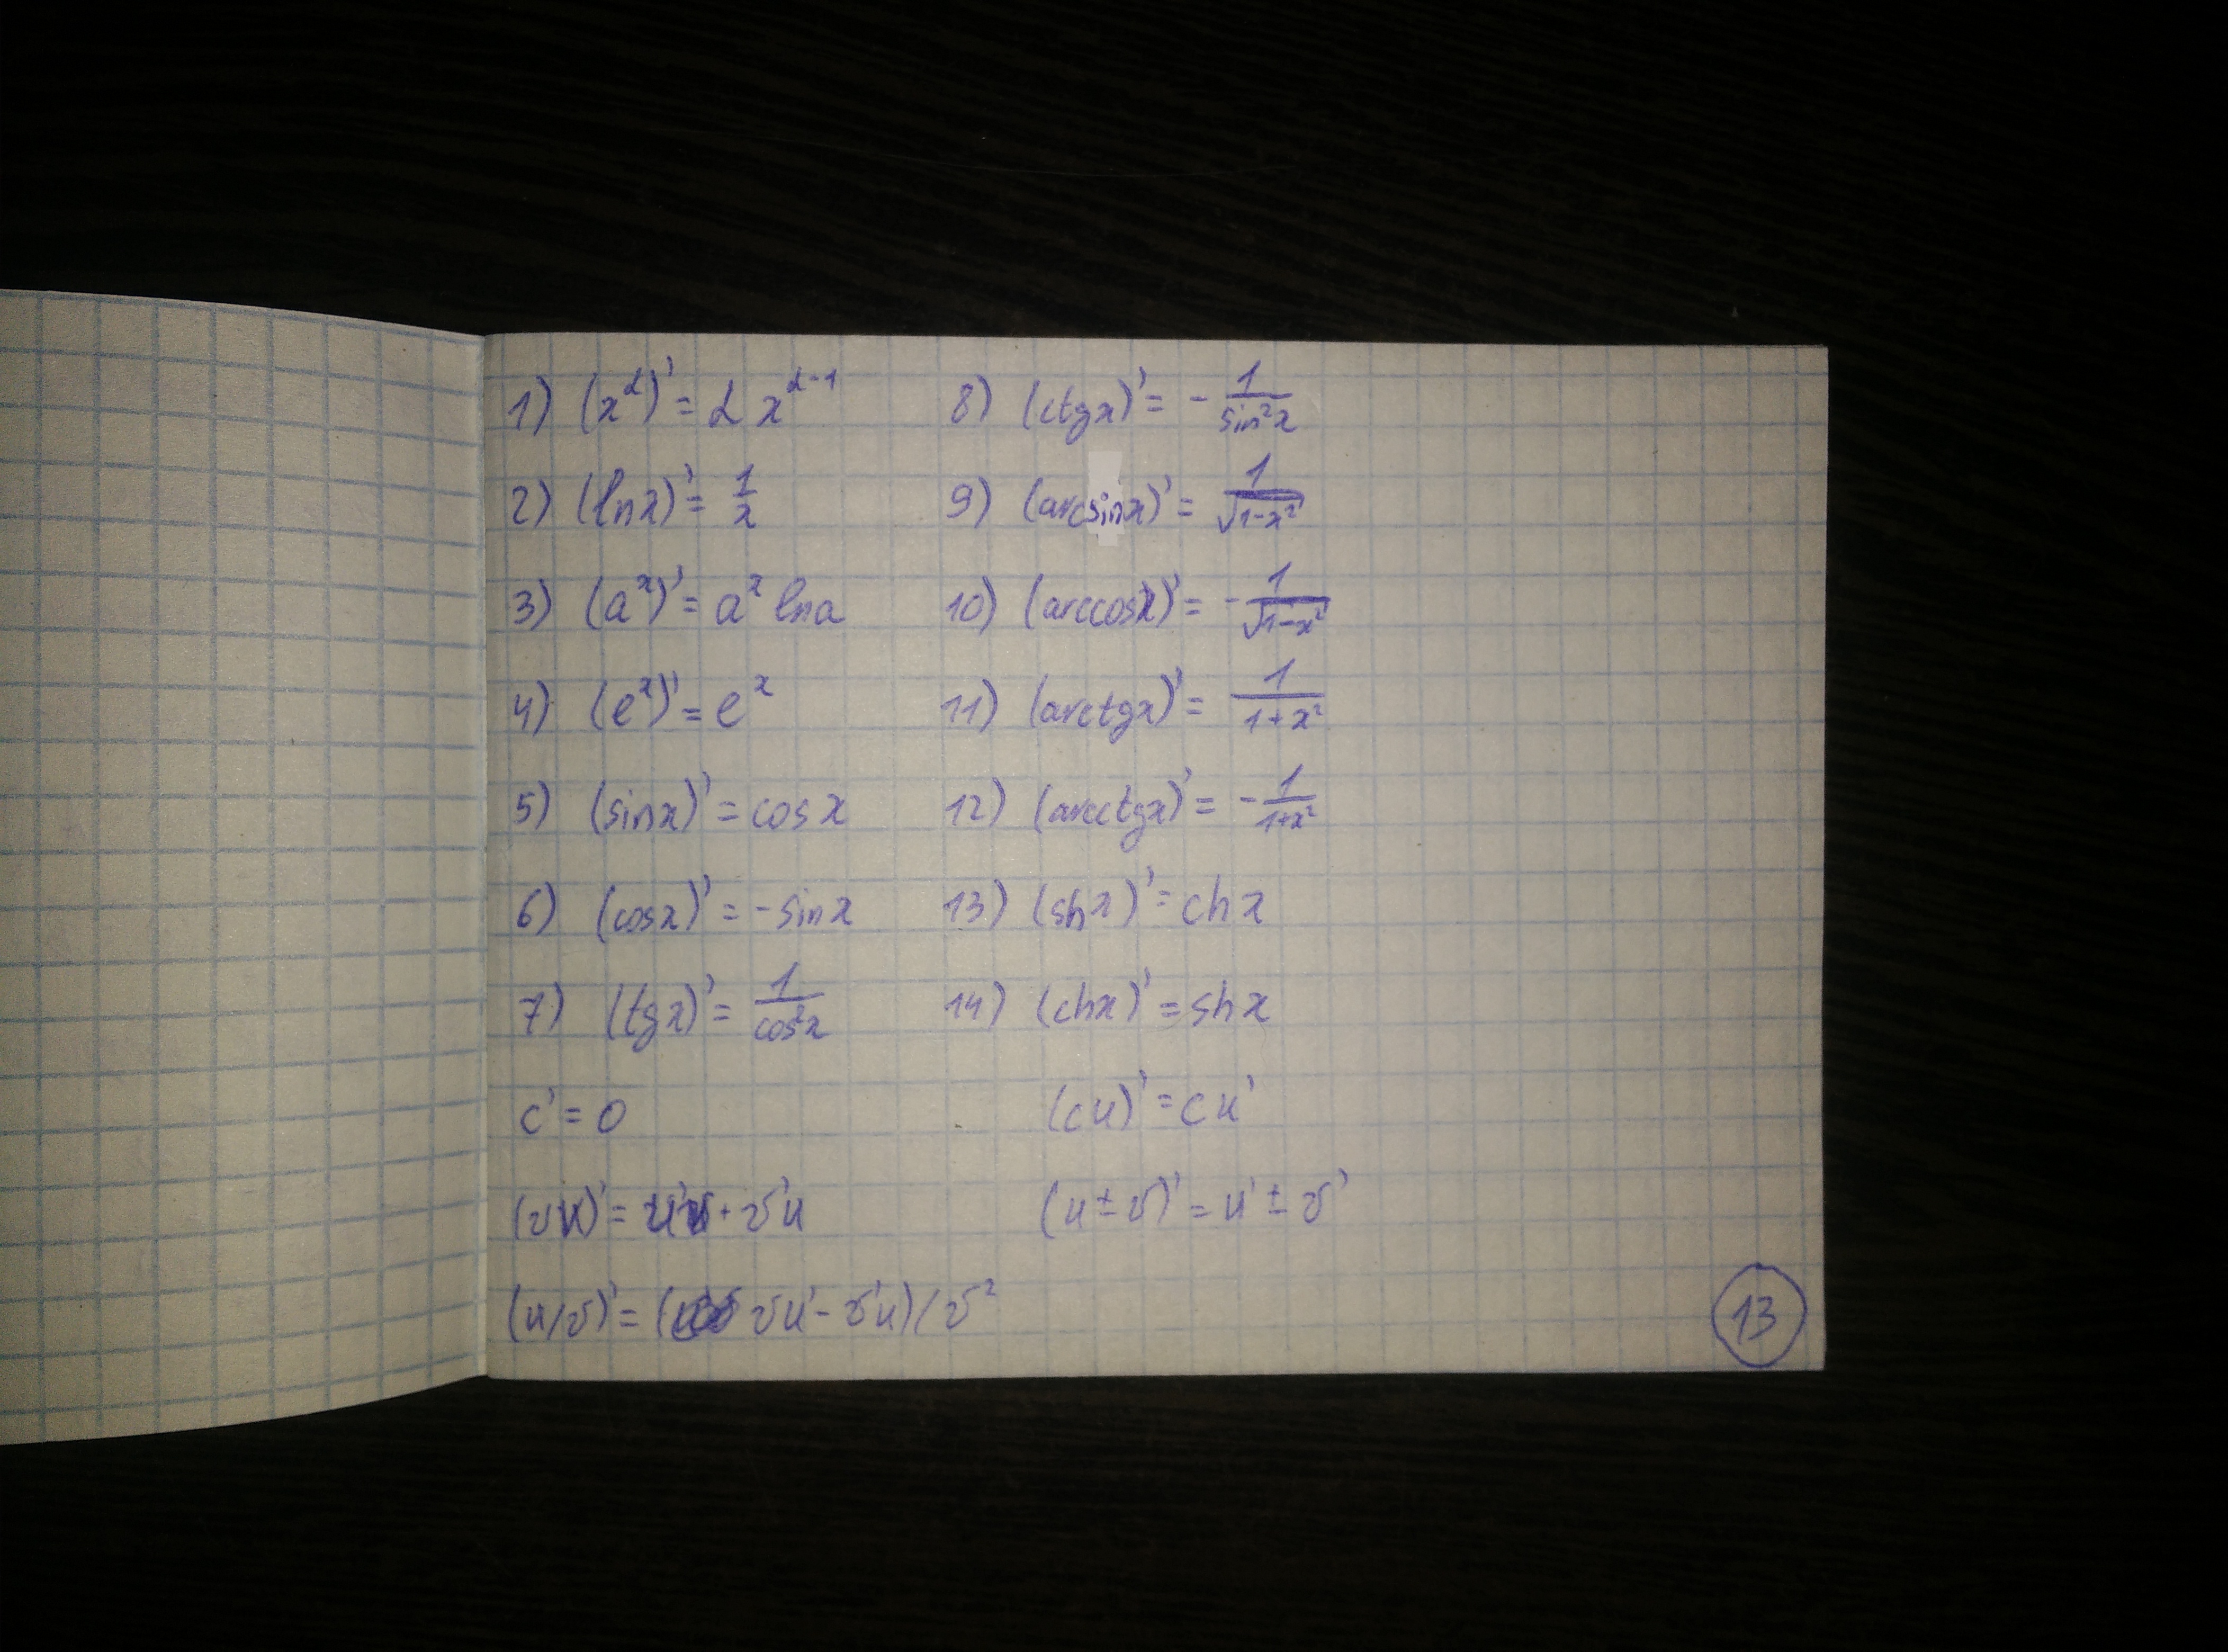 1) (x^α)' = α x^(α-1)
2) (ln x)' = 1/x
3) (a^x)' = a^x ln a
4) (e^x)' = e^x
5) (sin x)' = cos x
6) (cos x)' = - sin x
7) (tg x)' = 1/cos²x
8) (ctg x)' = - 1/sin²x
9) (arcsin x)' = 1/√(1-x²)
10) (arccos x)' = - 1/√(1-x²)
11) (arctg x)' = 1/(1+x²)
12) (arcctg x)' = - 1/(1+x²)
13) (sh x)' = ch x
14) (ch x)' = sh x
c' = 0
(cu)' = cu'
(vu)' = u'v + v'u
(u ± v)' = u' ± v'
(u/v)' = (vu' - v'u)/v²
13